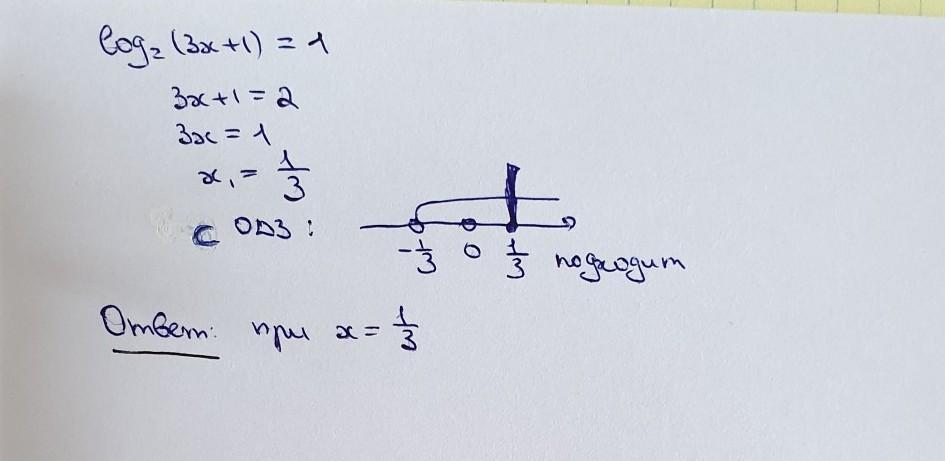 log₂ (3x+1) = 1
3x+1 = 2
3x = 1
x₁ = 1/3
с ОДЗ :
-1/3 0 1/3 подходит
Ответ: при x = 1/3